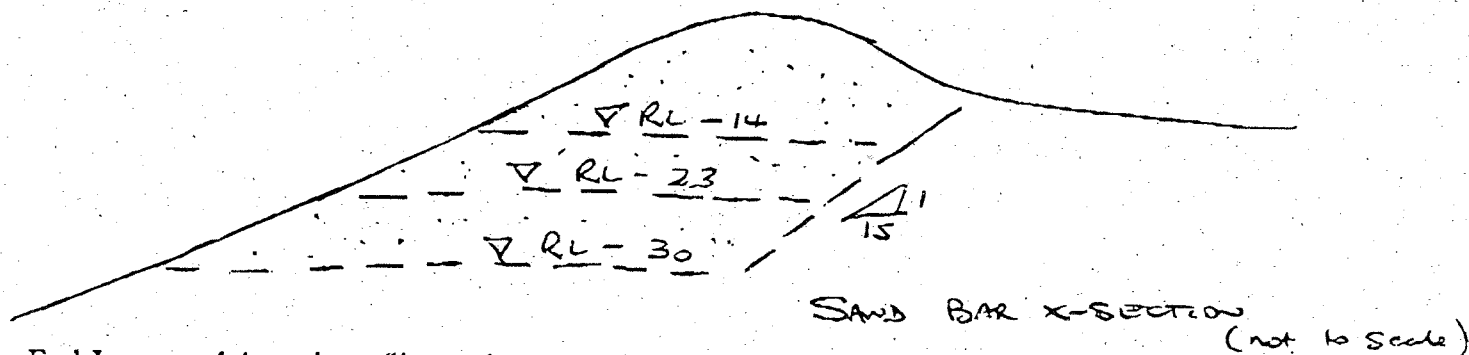 ∇ RL -14
∇ RL - 23
1
15
∇ RL - 30
SAND BAR X-SECTION
(not to scale)